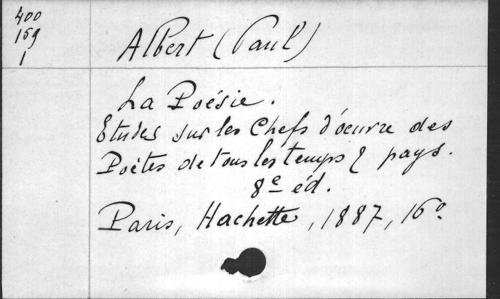 400
159
1
Albert (Paul)
La Poésie.
Etudes sur les Chefs d'oeuvre des
Poëtes de tous les temps & pays.
8e éd.
Paris, Hachette, 1887, 16o.